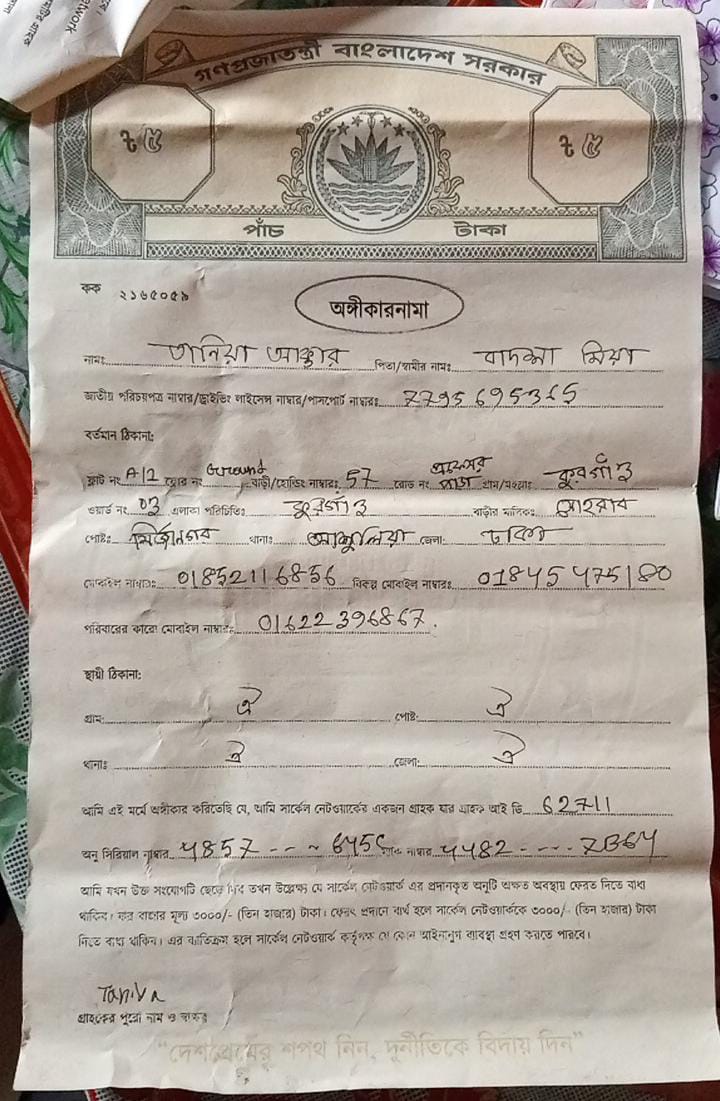 গণপ্রজাতন্ত্রী বাংলাদেশ সরকার
৳ ৫ ৳ ৫
পাঁচ টাকা
কক ২১৬৫০৫৯
অঙ্গীকারনামা
নামঃ তানিয়া আক্তার পিতা/স্বামীর নামঃ বাদশা মিয়া
জাতীয় পরিচয়পত্র নাম্বার/ড্রাইভিং লাইসেন্স নাম্বার/পাসপোর্ট নাম্বারঃ 7795695365
বর্তমান ঠিকানা:
ফ্লাট নং A12 ফ্লোর নং Ground বাড়ী/হোল্ডিং নাম্বারঃ 57 রোড নং প্রফেসর পাড়া গ্রাম/মহল্লাঃ কুরগাঁও
ওয়ার্ড নং 03 এলাকা পরিচিতিঃ কুরগাঁও বাড়ীর মালিকঃ সোহরাব
পোষ্টঃ মির্জানগর থানাঃ আশুলিয়া জেলা: ঢাকা
মোবাইল নাম্বারঃ 01852116856 বিকল্প মোবাইল নাম্বারঃ 01845475180
পরিবারের কারো মোবাইল নাম্বারঃ 01622396867.
স্থায়ী ঠিকানা:
গ্রাম: ঐ পোষ্ট: ঐ
থানাঃ ঐ জেলা: ঐ
আমি এই মর্মে অঙ্গীকার করিতেছি যে, আমি সার্কেল নেটওয়ার্কের একজন গ্রাহক যার গ্রাহক আই ডি 62711
অনু সিরিয়াল নাম্বার 4857 - - ~ 645C ম্যাক নাম্বার 4482 - - - - 7B64
আমি যখন উক্ত সংযোগটি ছেড়ে দিব তখন উল্লেক্ষ যে সার্কেল নেটওয়ার্ক এর প্রদানকৃত অনুটি অক্ষত অবস্থায় ফেরত দিতে বাধ্য
থাকিব। যার বাজার মূল্য ৩০০০/- (তিন হাজার) টাকা। ফেরৎ প্রদানে ব্যর্থ হলে সার্কেল নেটওয়ার্ককে ৩০০০/- (তিন হাজার) টাকা
দিতে বাধ্য থাকিব। এর ব্যতিক্রম হলে সার্কেল নেটওয়ার্ক কর্তৃপক্ষ যে কোন আইনানুগ ব্যাবস্থা গ্রহণ করতে পারবে।
Taniya
গ্রাহকের পুরো নাম ও স্বাক্ষর
"দেশপ্রেমের শপথ নিন, দুর্নীতিকে বিদায় দিন"